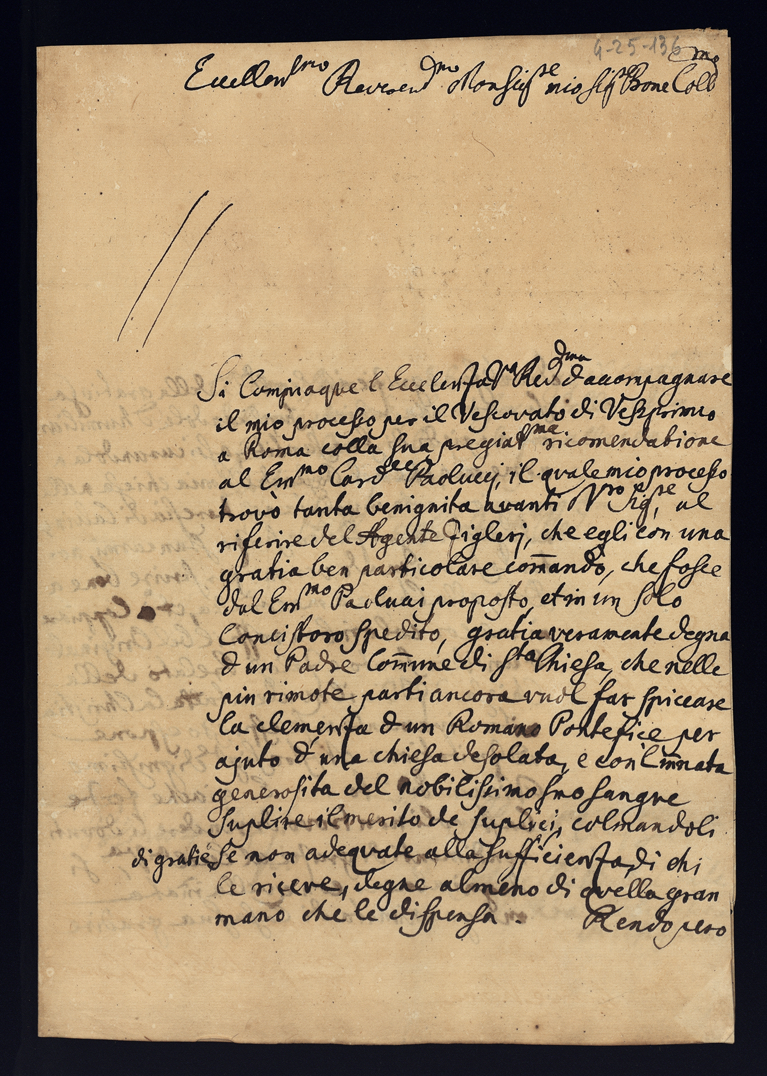 4-25-136
Eccellenmo Reverendmo Monsigre mio Sigre Prone Collmo
Si Compiaque l'Eccelenza Vra Reddma d'acompagnare
il mio processo per il Vescovato di Vesprimio
a Roma colla sua pregiatma ricomendatione
al Emmo Cardle Paolucci, il quale mio processo
trovò tanta benignita avanti Nro Sigre, al
riferire del Agente Ziglerj, che egli con una
gratia ben particolare com̃ando, che fosce
dal Emmo Paoluci proposto, et in un solo
Concistoro spedito, gratia veramente degna
d'un Padre Com̃une di Sta Chiesa, che nelle
piu rimote parti ancora vuol far spiccare
la clemenza d'un Romano Pontefice per
ajuto d'una chiesa desolata, e con l'innata
generosita del nobilissimo suo sangue
suplire il merito de suplici, colmandoli
di gratie, se non adequate alla sufficienza, di chi
le riceve, degne almeno di quella gran
mano che le dispensa. Rendo pero